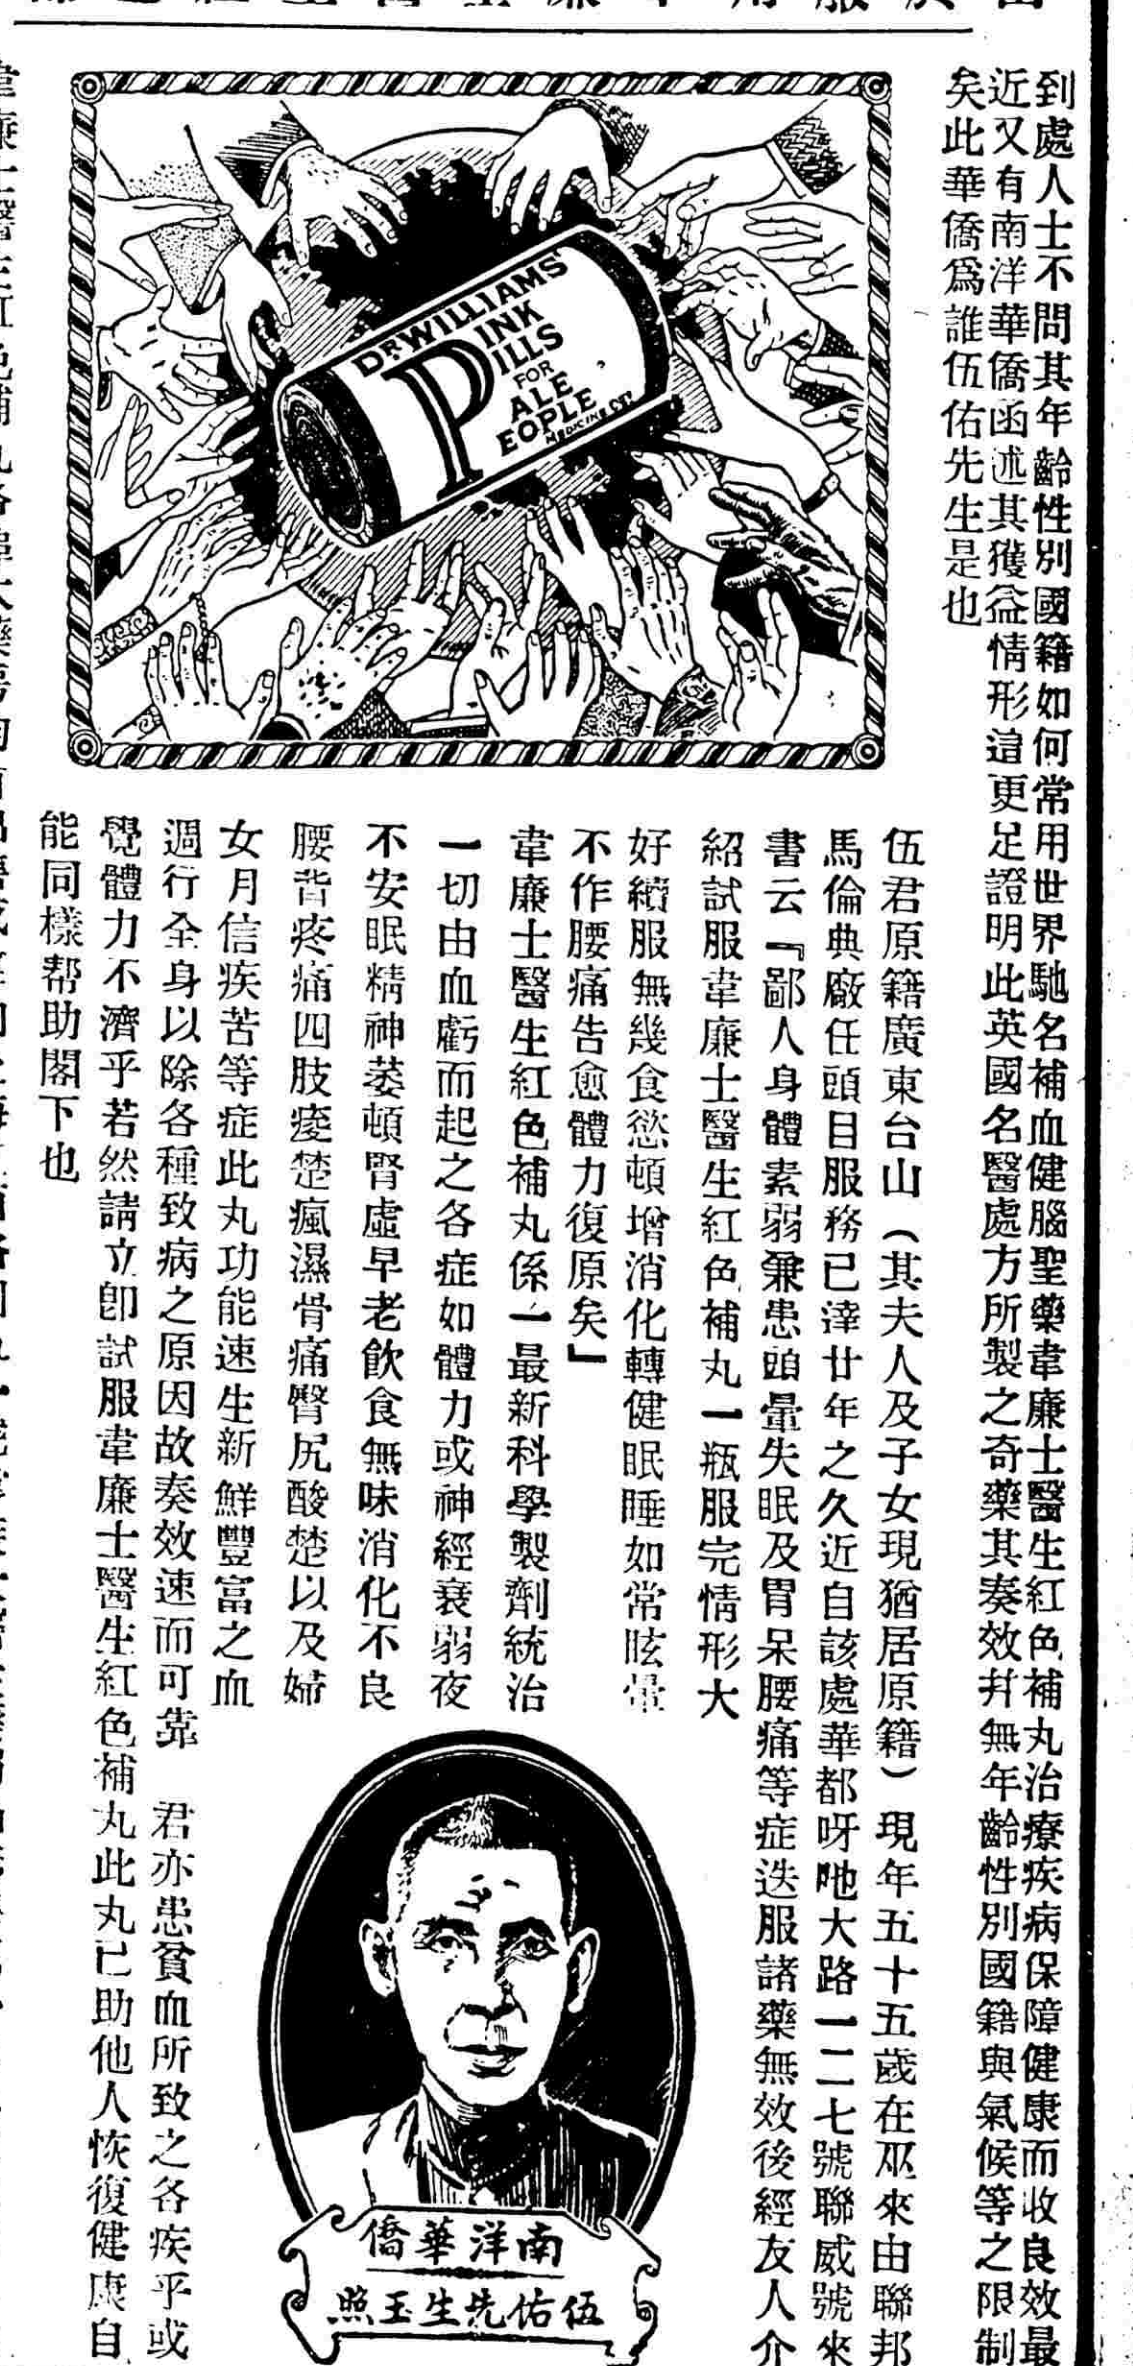 到處人士不問其年齡性別國籍如何常用世界馳名補血健腦聖藥韋廉士醫生紅色補丸治療疾病保障健康而收良效最
近又有南洋華僑函述其獲益情形這更足證明此英國名醫處方所製之奇藥其奏效幷無年齡性別國籍與氣候等之限制
矣此華僑爲誰伍佑先生是也
DR WILLIAMS'
PINK
PILLS
FOR
PALE
PEOPLE
MEDICINE CO.
伍君原籍廣東台山（其夫人及子女現猶居原籍）現年五十五歲在巫來由聯邦
馬倫典廠任頭目服務已達廿年之久近自該處華都呀吔大路一二七號聯威號來
書云『鄙人身體素弱兼患頭暈失眠及胃呆腰痛等症迭服諸藥無效後經友人介
紹試服韋廉士醫生紅色補丸一瓶服完情形大
好續服無幾食慾頓增消化轉健眠睡如常眩暈
不作腰痛告愈體力復原矣』
韋廉士醫生紅色補丸係一最新科學製劑統治
一切由血虧而起之各症如體力或神經衰弱夜
不安眠精神萎頓腎虛早老飲食無味消化不良
腰背疼痛四肢痠楚瘋濕骨痛臀尻酸楚以及婦
女月信疾苦等症此丸功能速生新鮮豐富之血
週行全身以除各種致病之原因故奏效速而可靠 君亦患貧血所致之各疾乎或
覺體力不濟乎若然請立卽試服韋廉士醫生紅色補丸此丸已助他人恢復健康自
能同樣帮助閣下也
南洋華僑
伍佑先生玉照